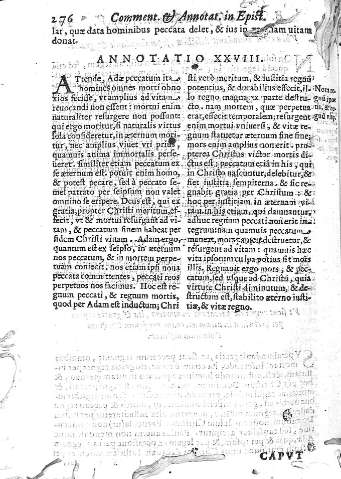 276 Comment. & Annotat. in Epist.
lar, quæ data hominibus peccata delet, & ius in æternam vitam
donat.
ANNOTATIO XXVIII.
ATtende, Adæ peccatum ita
homines omnes morti obno
xios fecisse, vt amplius ad vitam
reuocandi non essent: mortui enim
naturaliter resurgere non possunt:
qui ergo moritur, si naturalis virtus
sola consideretur, in æternum mori-
tur, nec amplius viuet vti prius,
quamuis anima immortalis perse-
ueret. similiter etiam peccatum ex
se æternum est. potuit enim homo,
& potest peccare, sed à peccato se-
mel patrato per seipsum non valet
omnino se eripere. Deus est, qui ex
gratia, propter Christi meritum ef-
fecit, vt & mortui resurgant ad vi-
tam, & peccatum finem habeat per
fidem Christi vitam. Adam ergo,
quantum est ex seipso, in æternum
nos peccatum, & in mortem perpe-
tuam coniecit. nos etiam ipsi noua
peccata committentes, peccati reos
perpetuos nos facimus. Hoc est re-
gnum peccati, & regnum mortis,
quod per Adam est inductum; Chri
sti verò meritum, & iustitia regni
potentius, & durabilius effecit, il-
lo regno magna ex parte destru-
cto. nam mortem, quæ perpetua
erat, effecit temporalem; resurgent
enim mortui vniuersi, & vita re-
gnum statuetur æternum sine fine:
mors enim amplius non erit. pro-
pterea Christus victor mortis di-
ctus est; peccatum etiam in his, qui
in Christo nascuntur, delebitur, &
fiet iustitia sempiterna, & sic re-
gnabit gratia per Christum: &
hoc per iustitiam in æternam vi-
tam. in his etiam, qui damnantur,
adhuc regnum peccati non erit ita
regnum: nam quamuis peccatum
maneat, mors tamen destruetur, &
resurgent ad vitam: quamuis hæc
vita ipsorum vt ipsa potius sit mors
illis. Regnauit ergo mors, & pec-
catum, sed vsque ad Christum, quia
virtute Christi diminutum, & de-
structum est, stabilito æterno iusti-
tiæ, & vitæ regno.
CAPVT